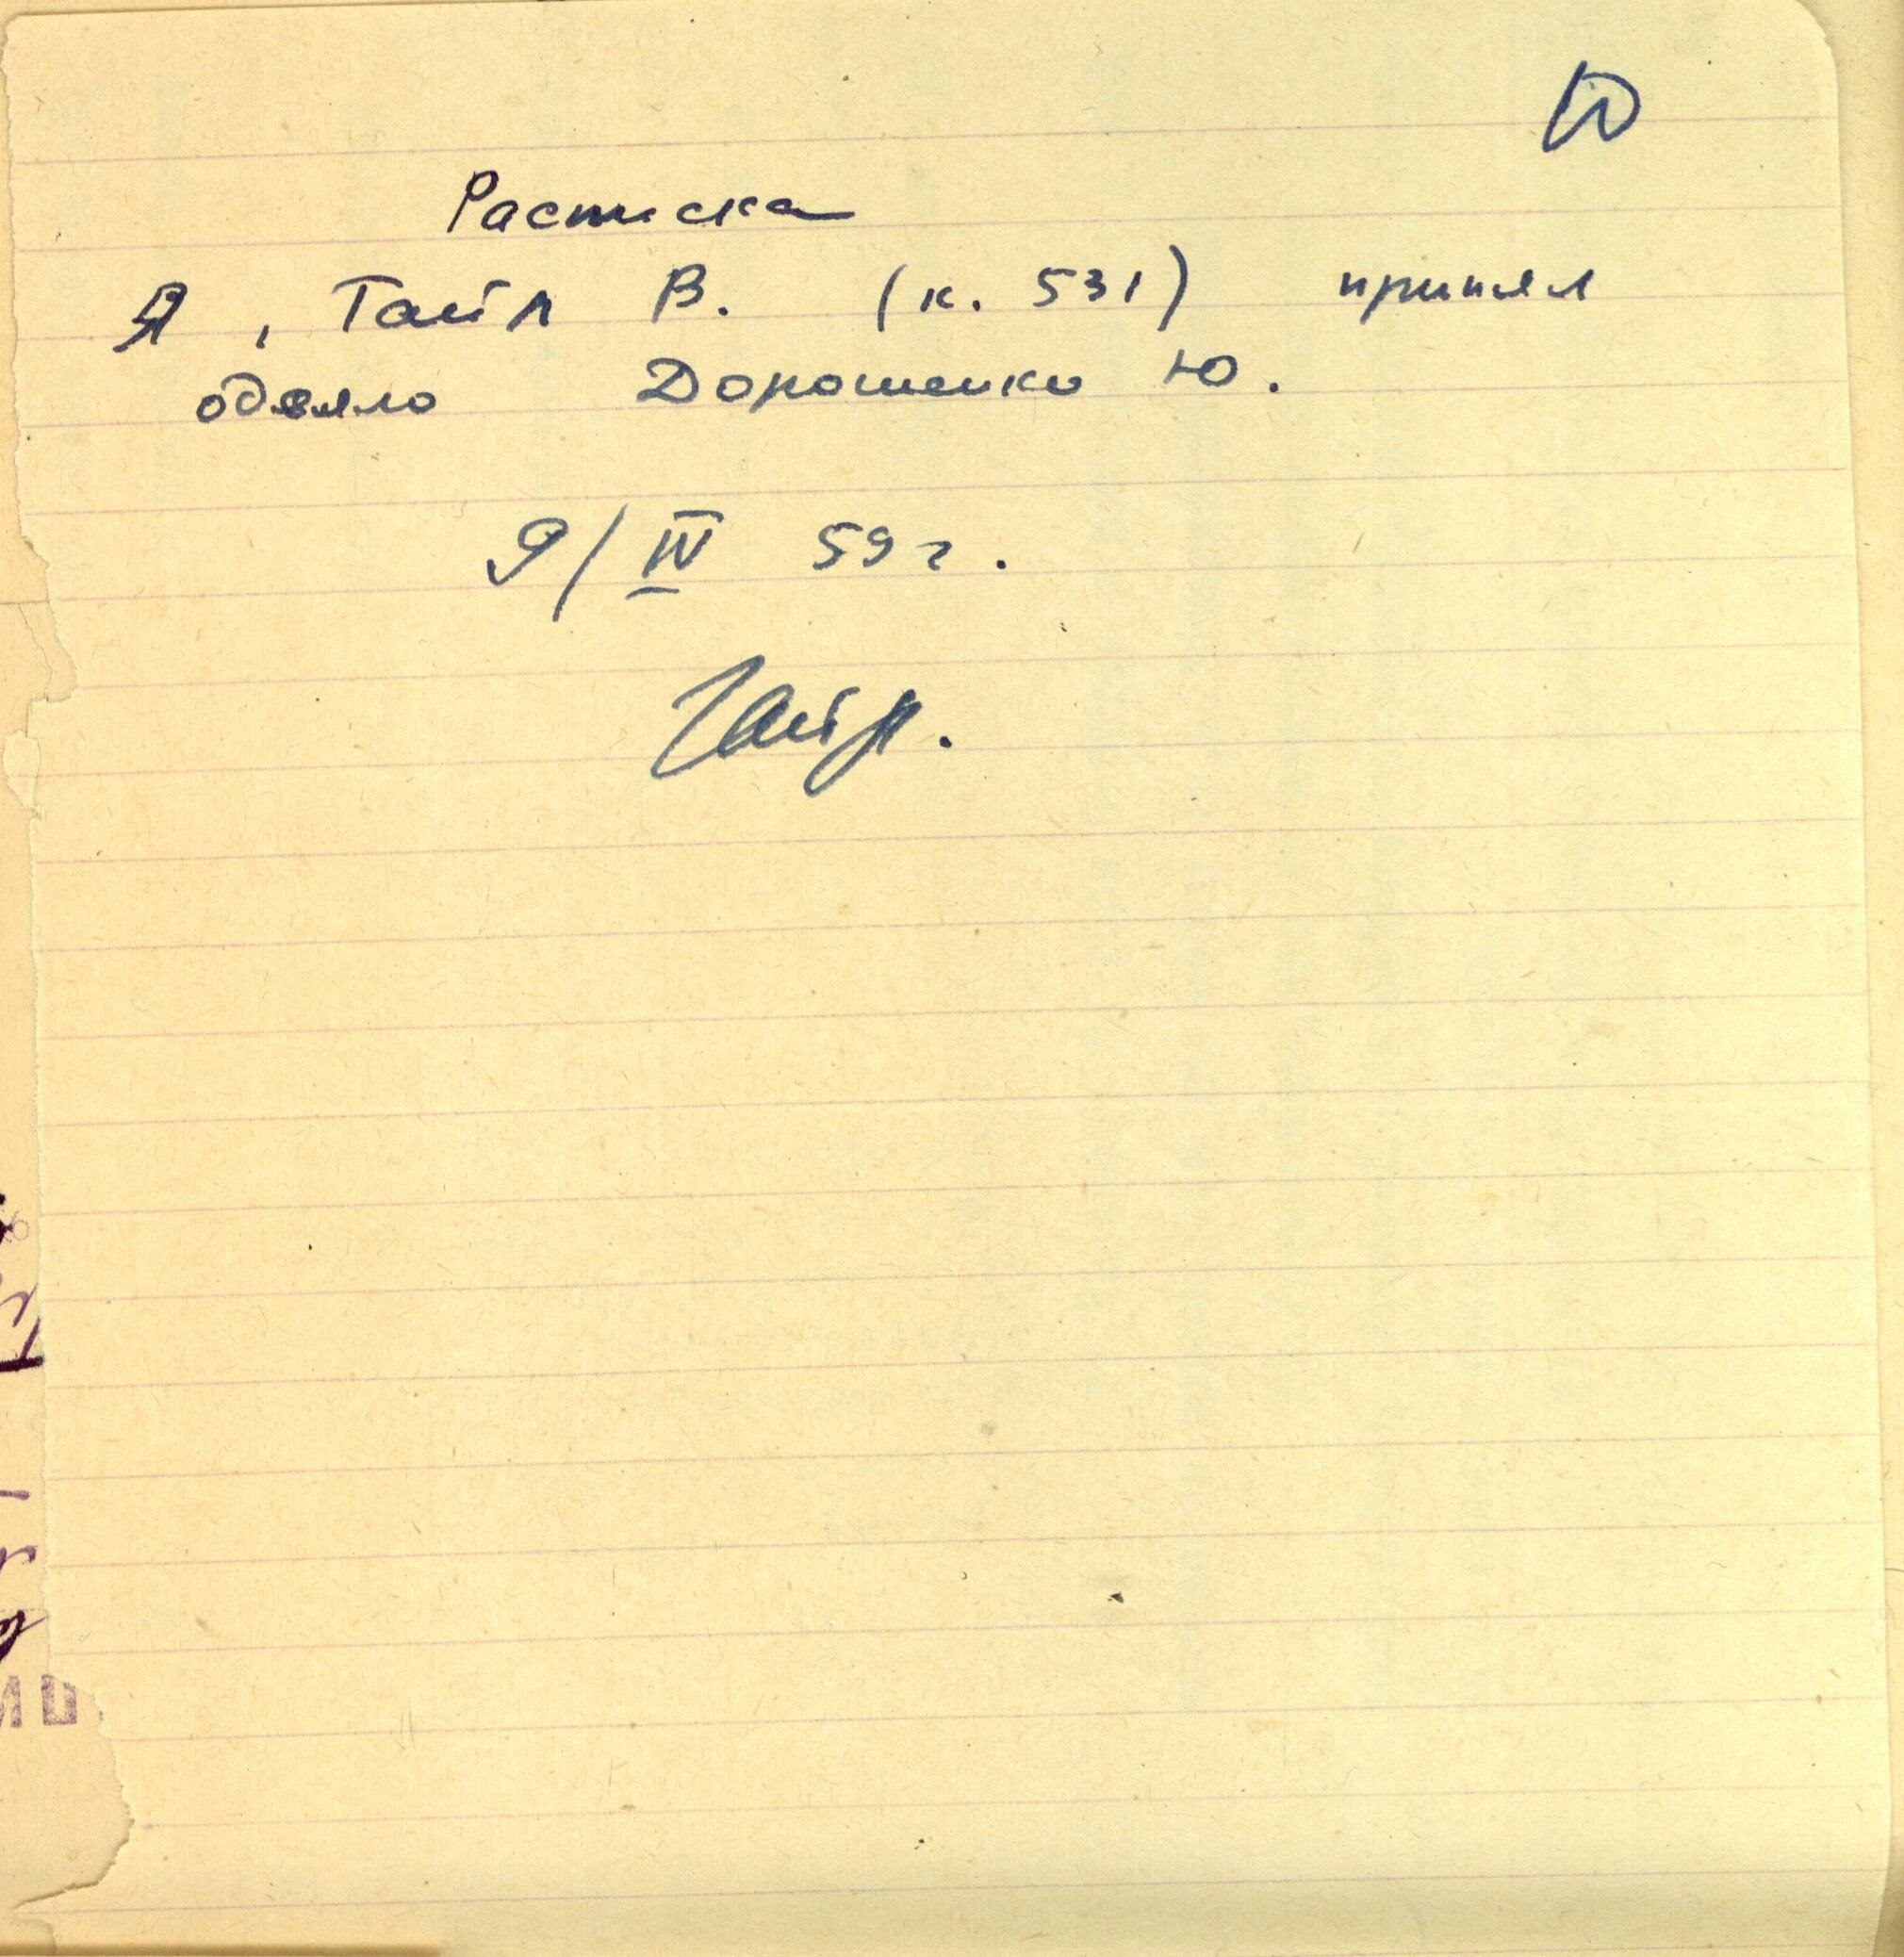 Расписка
Я, Тайл В. (к. 531) принял
одеяло Дорошенко Ю.
9/IV 59 г.